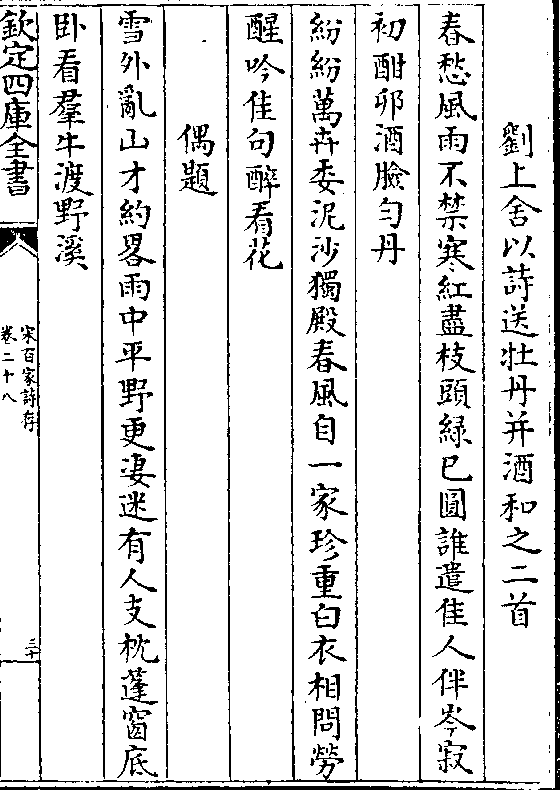 劉上舍以詩送牡丹并酒和之二首
春愁風雨不禁寒紅盡枝頭緑已圓誰遣佳人伴岑寂
初酣卯酒臉勻丹
紛紛萬卉委泥沙獨殿春風自一家珍重白衣相問勞
醒吟佳句醉看花
偶題
雪外亂山才約畧雨中平野更凄迷有人支枕蓬窗底
卧看羣牛渡野溪
欽定四庫全書
宋百家詩存
卷二十八
三十